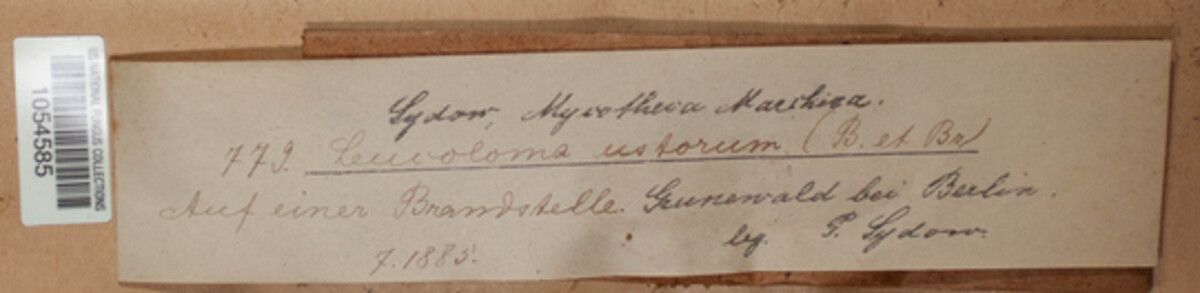 US NATIONAL FUNGUS COLLECTIONS
1054585
Sydow, Mycotheca Marchica.
779. Leucoloma ustorum (B. et Br)
Auf einer Brandstelle. Grunewald bei Berlin.
7. 1885. leg. P. Sydow.